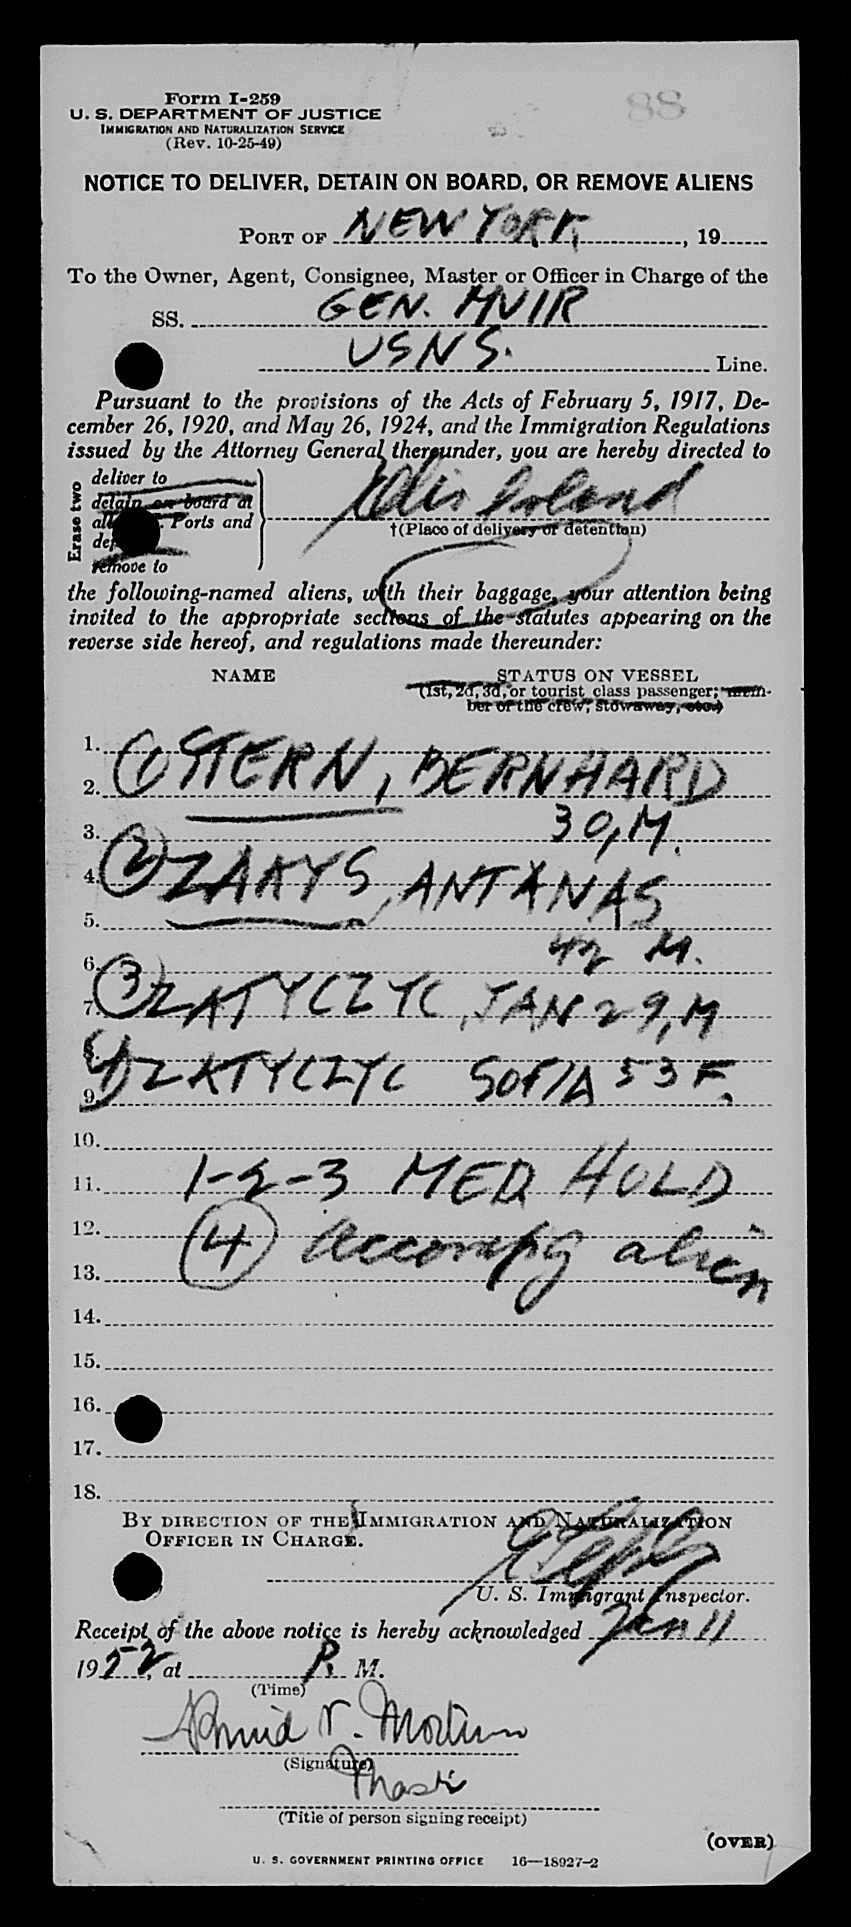 88
Form I-259
U. S. DEPARTMENT OF JUSTICE
IMMIGRATION AND NATURALIZATION SERVICE
(Rev. 10-25-49)
NOTICE TO DELIVER, DETAIN ON BOARD, OR REMOVE ALIENS
PORT OF NEW YORK, 19
To the Owner, Agent, Consignee, Master or Officer in Charge of the
SS. GEN. MUIR
USNS. Line.
Pursuant to the provisions of the Acts of February 5, 1917, De-
cember 26, 1920, and May 26, 1924, and the Immigration Regulations
issued by the Attorney General thereunder, you are hereby directed to
Erase two
deliver to
detain on board at
Ports and
remove to
Ellis Island
†(Place of delivery or detention)
the following-named aliens, with their baggage, your attention being
invited to the appropriate sections of the statutes appearing on the
reverse side hereof, and regulations made thereunder:
NAME STATUS ON VESSEL
(1st, 2d, 3d, or tourist class passenger; mem-
ber of the crew, stowaway, etc.)
1.
2. (1) STERN, BERNHARD
3. 30, M.
4. (2) ZAKYS, ANTANAS
5.
6. 42 M.
7. (3) ZATYCZYC, JAN 29, M
8.
9. (4) ZATYCZYC SOFIA 53 F.
10.
11. 1-2-3 MED HOLD
12.
13. (4) accompg alien
14.
15.
16.
17.
18.
BY DIRECTION OF THE IMMIGRATION AND NATURALIZATION
OFFICER IN CHARGE.
U. S. Immigrant Inspector.
Receipt of the above notice is hereby acknowledged Jan 11
1952, at P. M.
(Time)
(Signature)
(Title of person signing receipt)
(OVER)
U. S. GOVERNMENT PRINTING OFFICE 16—18927-2